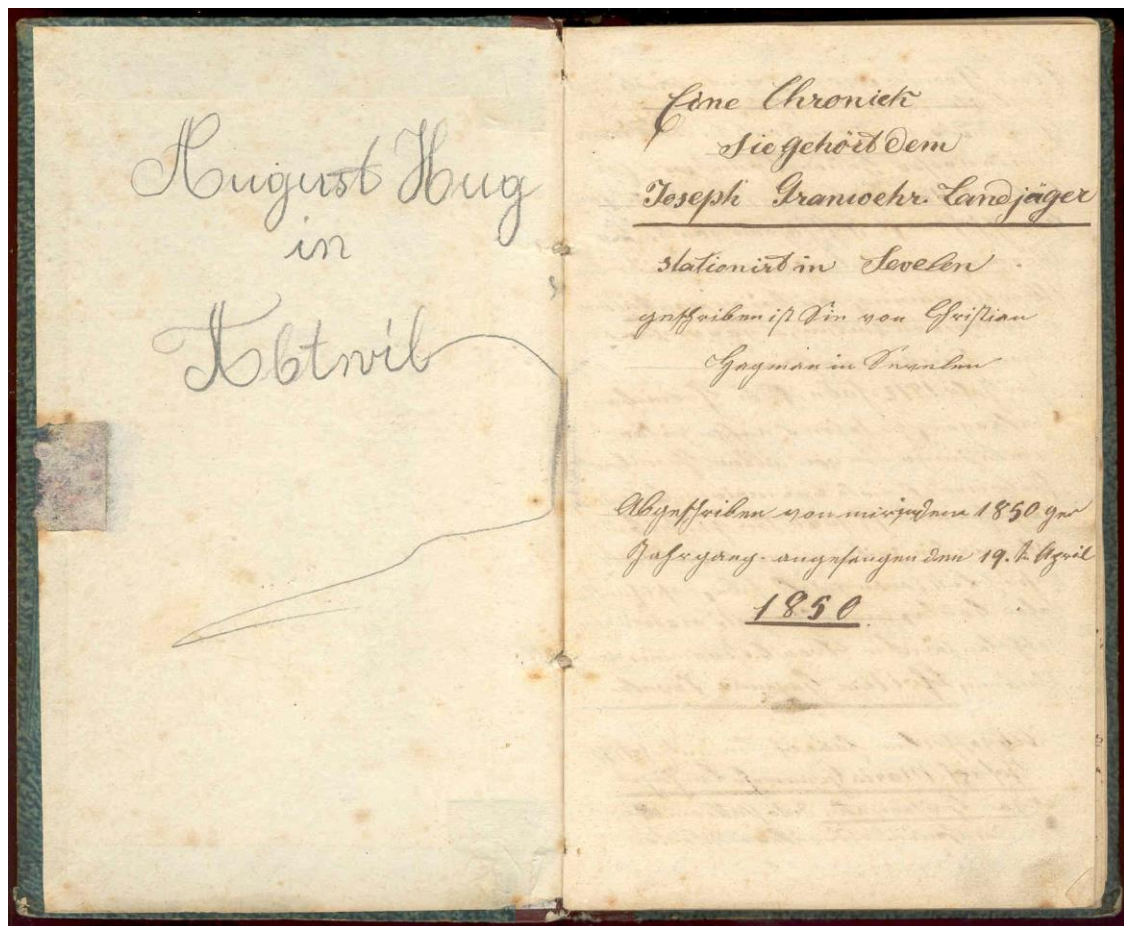 August Hug
in
Abtwil
Eine Chronick
sie gehört dem
Joseph Granwehr. Landjäger
stationirt in Sevelen
geschriben ist Sie von Christian
Hagman in Sevelen
Abgeschriben von mir 1850 ger
Jahrgang. angefangen den 19. t. April
1850.